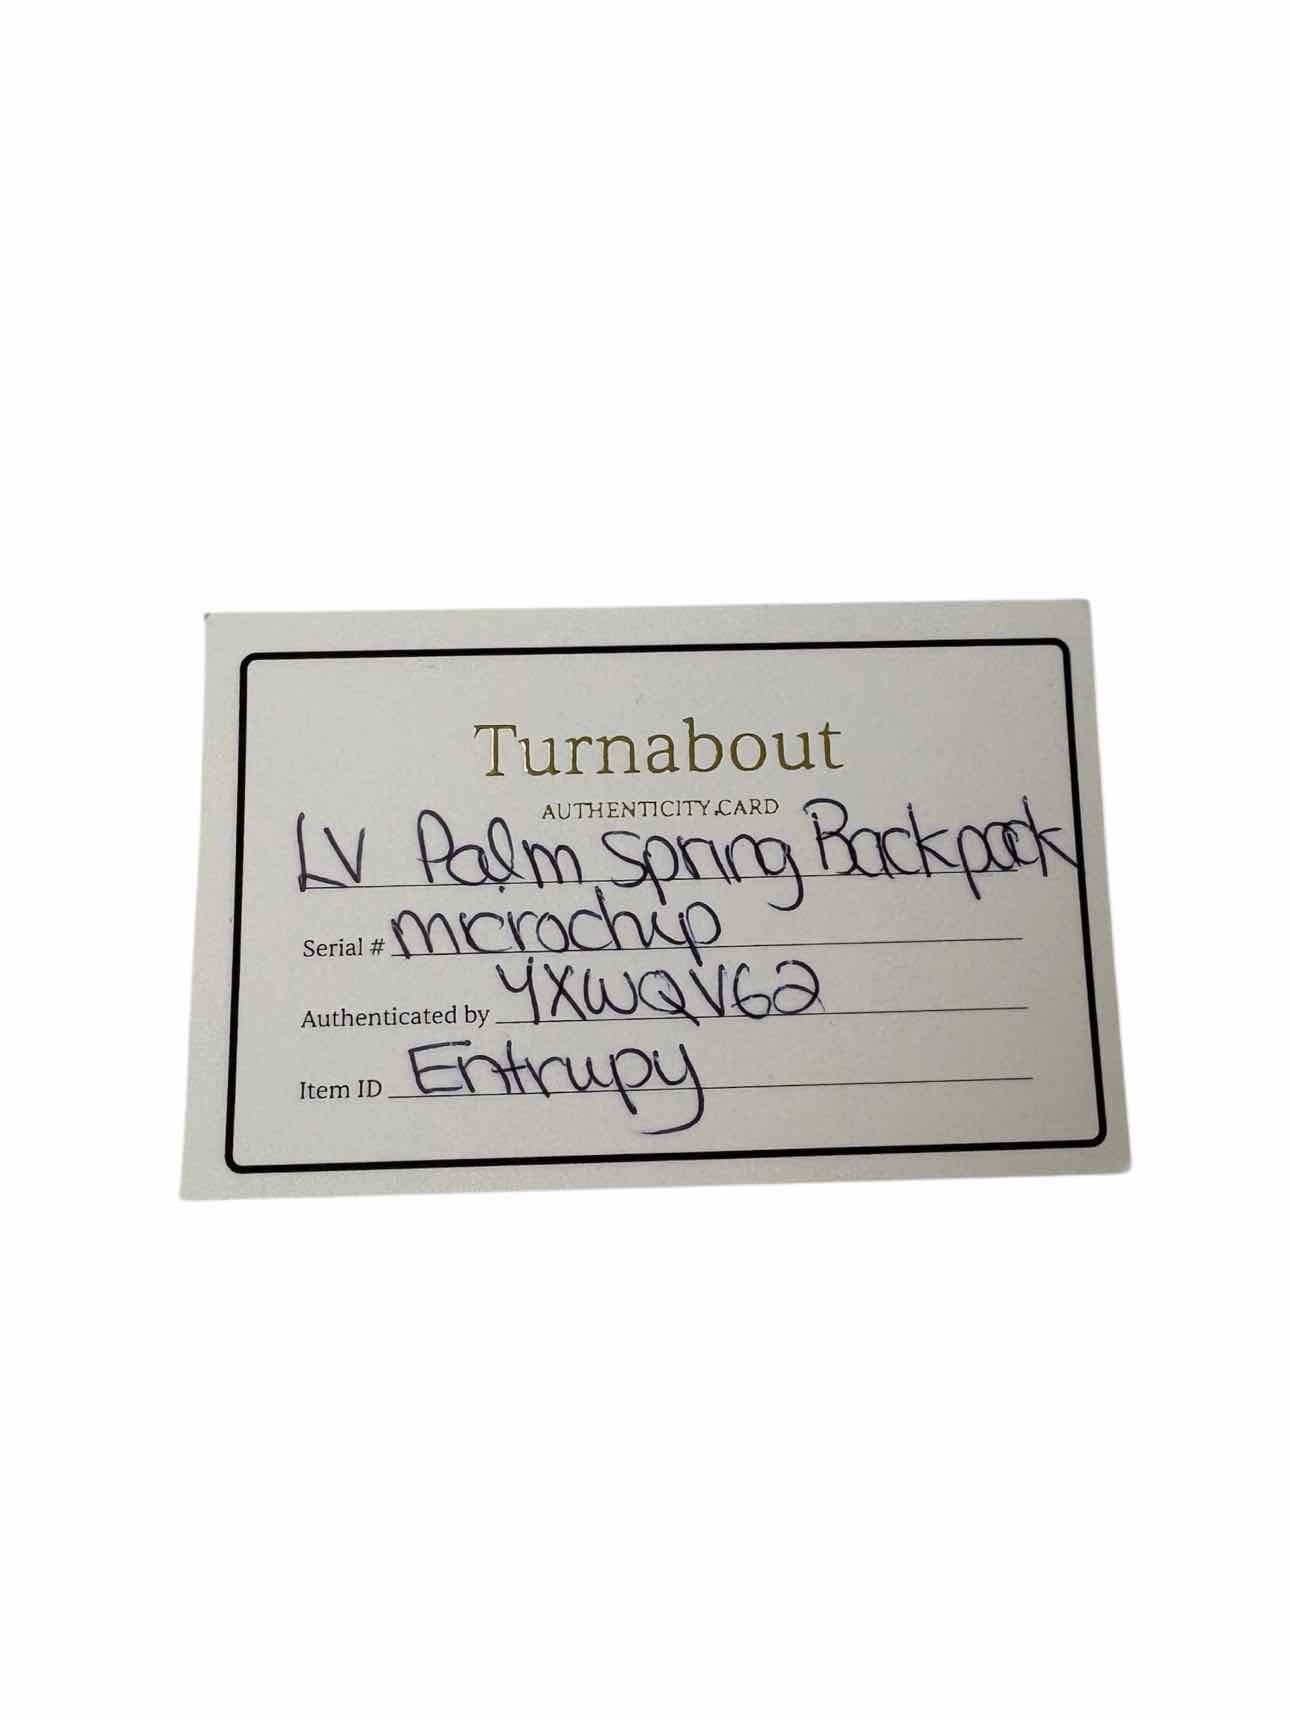 Turnabout
AUTHENTICITY CARD
LV Palm Spring Backpack
Serial # microchip
Authenticated by YXWQV62
Item ID Entrupy